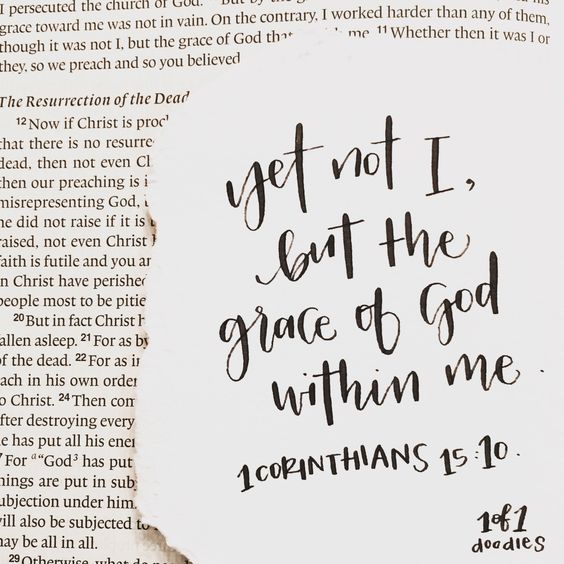 I persecuted the church of God.
grace toward me was not in vain. On the contrary, I worked harder than any of them,
though it was not I, but the grace of God me. 11 Whether then it was I or
they, so we preach and so you believed
The Resurrection of the Dead
12 Now if Christ is
that there is no
dead, then not even
then our preaching is
misrepresenting God,
he did not raise if it is
raised, not even Christ
faith is futile and you
in Christ have
people most to be
20 But in fact Christ
fallen asleep. 21 For as by
of the dead. 22 For as
each in his own order
to Christ. 24 Then
after destroying every
he has put all his
27 For a "God 3 has put
things are put in
subjection under him.
will also be subjected
may be all in all.
29 Otherwise, what do
yet not I,
but the
grace of God
within me.
1 CORINTHIANS 15:10.
1of1
doodles